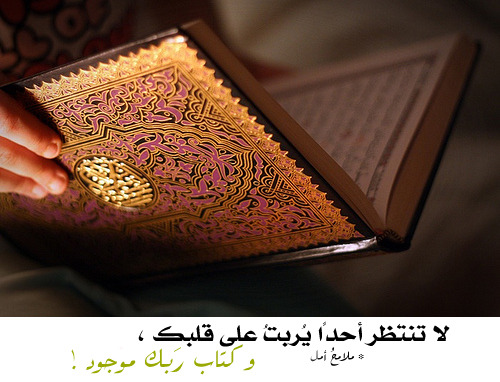 لا تنتظر أحدًا يُربتُ على قلبك ،
و كتاب رَبك موجود !
* ملامحُ أمل